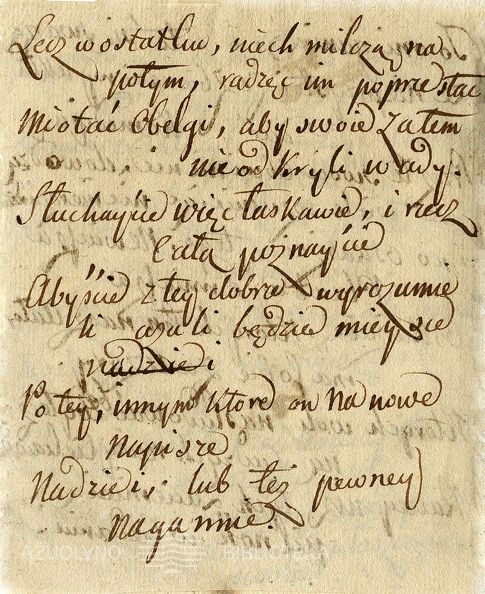 Lecz w ostatku, niech milczą na
potym, radzę im poprzestać
Miotać Obelgi, aby swoie zatem
nieodkryli wady.
Słuchayćie więc łaskawie, i rzecz
Całą poznayćie
Abyśćie z tey dobrze wyrozumie
li azali będzie mieysce
nadziei
Po tey, innym ktore on na nowe
napisze
Nadziei, lub też pewney
naganie.
AZUOLYNO BIBLIOTEKA